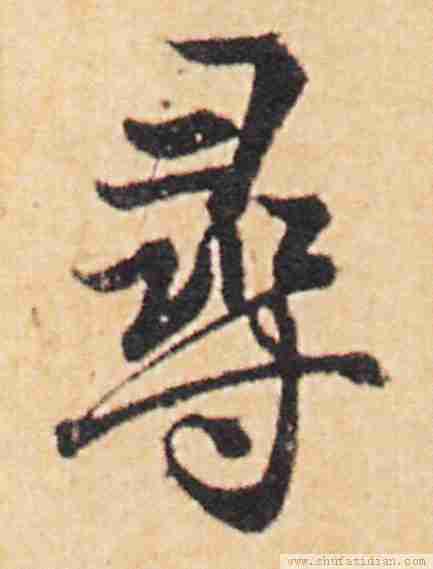 尋
www.shufatidian.com